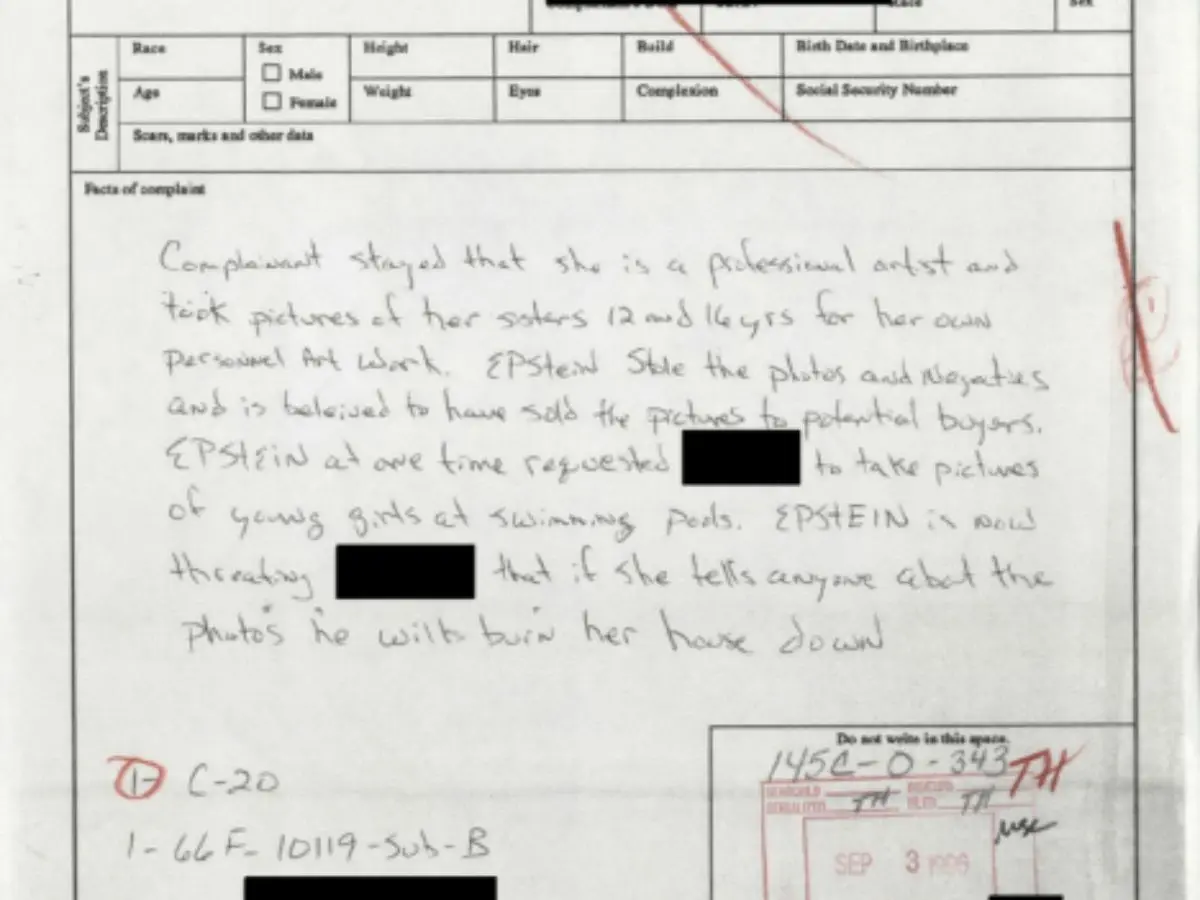 Race
Sex
Race
Sex
Height
Hair
Build
Birth Date and Birthplace
Male
Age
Weight
Eyes
Complexion
Social Security Number
Female
Subject's
Description
Scars, marks and other data
Facts of complaint
Complainant stayed that she is a professional artist and
took pictures of her sisters 12 and 16 yrs for her own
Personnel Art Work. EPStein Stole the photos and Negaties
and is beleived to have sold the pictures to potential buyers.
EPSTEIN at one time requested to take pictures
of young girls at swimming pools. EPSTEIN is now
threating that if she tells anyone abot the
photos he will burn her house down
Do not write in this space.
145C-0-343 TH
TH TH
SEP 3 1996
1- C-20
1-66F-10119-Sub-B